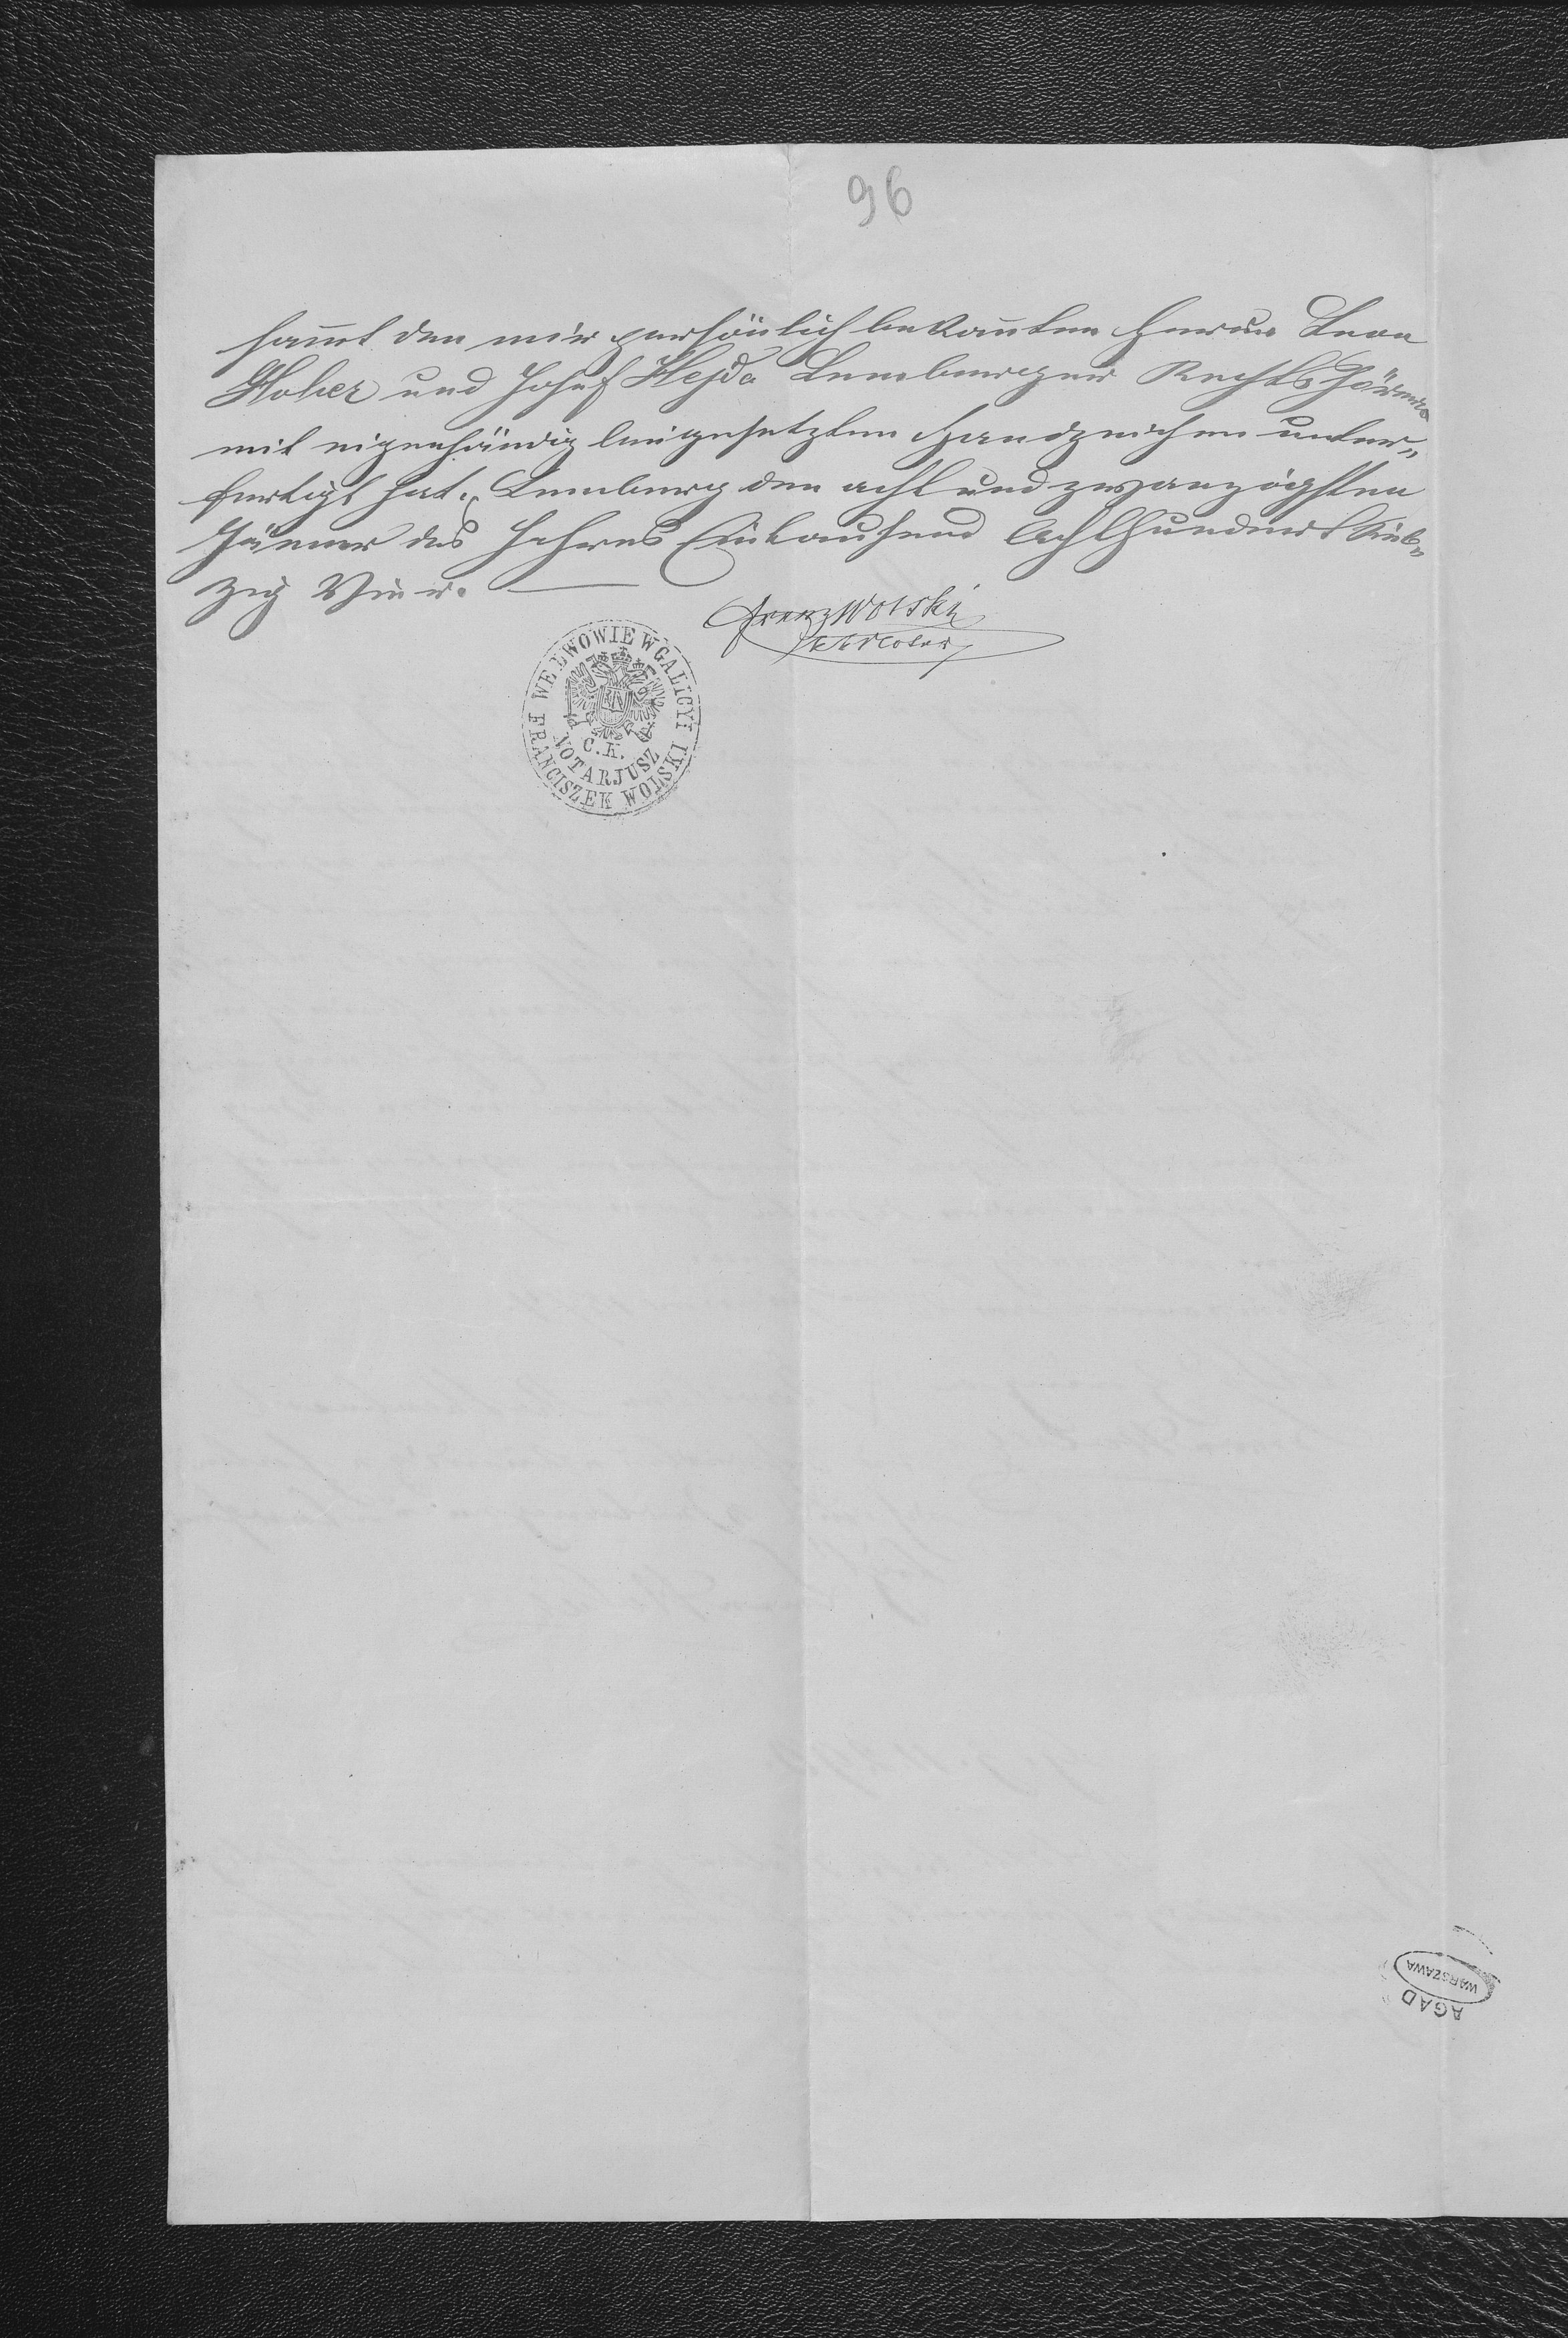 96
sammt den mir persönlich bekannten Herren Leon
und Josef Hejda Lemberger Rechtshörern
mit eigenhändig beigesetzten Handzeichen unter„
fertigt hat. Lemberg den acht und zwanzigsten
Jänner des Jahres Eintausend Achthundert Sieb„
zig Vier.
Franz Wolski
WE LWOWIE W GALICYI
C. K.
NOTARJUSZ
FRANCISZEK WOLSKI
AGAD
WARSZAWA